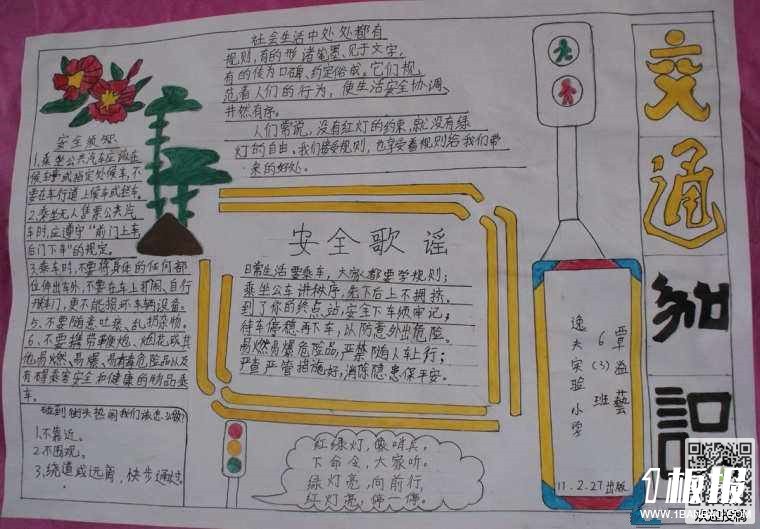 社会生活中处处都有
规则,有的形诸笔墨、见于文字,
有的传为口碑、约定俗成。它们规
范着人们的行为,使生活安全协调、
井然有序。
人们常说,没有红灯的约束,就没有绿
灯的自由。我们接受规则,也享受着规则给我们带
来的好处。
交通知识
安全须知
1、乘坐公共汽车应该在
候车亭或指定处候车,不
要在车行道上候车或拦车。
2、乘坐无人售票公共汽
车时,应遵守“前门上车
后门下车”的规定。
3、乘车时,不要将身体的任何部
位伸出车外,不要在车上打闹、自行
开车门,更不能损坏车辆设备。
5、不要随意吐痰、乱扔杂物。
6、不要携带鞭炮、烟花或其
他易燃、易爆、易有毒危险品以及
有碍乘客安全和健康的物品乘
车。
碰到街头热闹我们该怎么做?
1、不靠近。
2、不围观。
3、绕道或远离,快步通过。
安全歌谣
日常生活要乘车,大家都要学规则;
乘坐公车讲秩序,先下后上不拥挤。
到了你的终点站,安全下车须牢记;
待车停稳再下车,以防意外出危险。
易燃易爆危险品,严禁随人车上行;
严查严管措施好,消除隐患保平安。
红绿灯,像哨兵,
下命令,大家听。
绿灯亮,向前行,
红灯亮,停一停。
逸夫实验小学
6(3)班
覃益藝
11.2.27出版
1板报
WWW.1BANBAO.COM
欢迎投稿